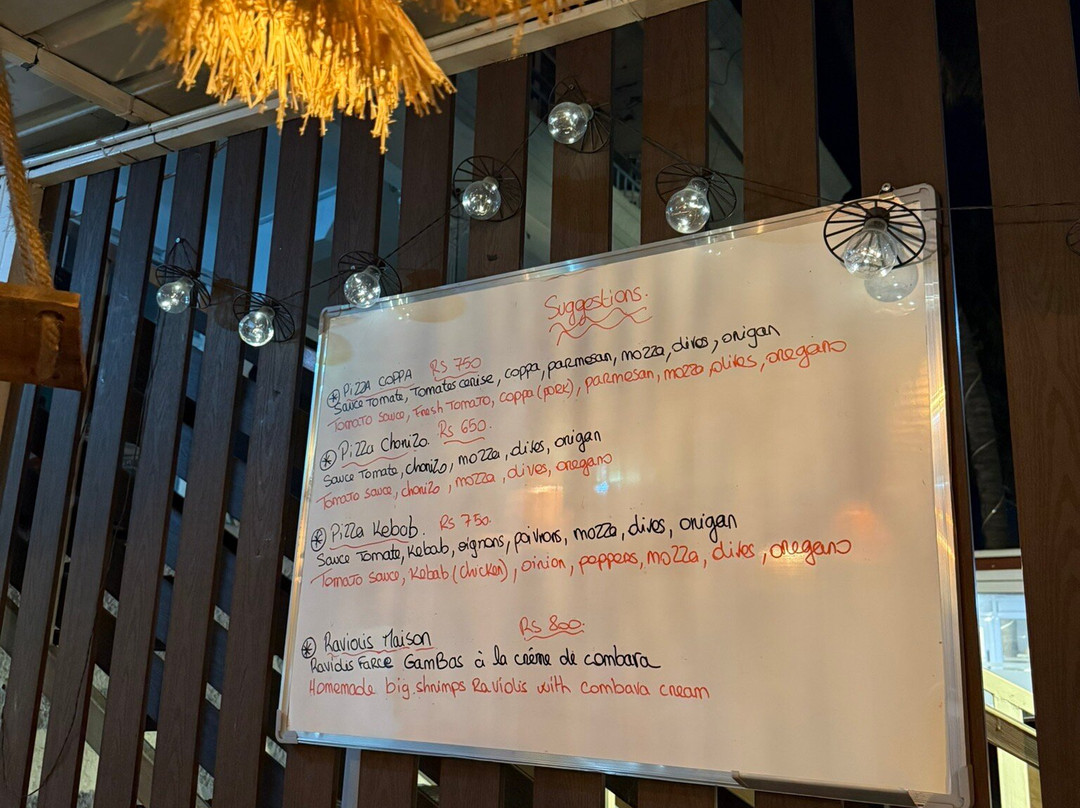 Suggestions.
* Pizza Coppa Rs 750
Sauce Tomate, Tomates cerise, coppa, parmesan, mozza, olives, origan
Tomato sauce, Fresh Tomato, coppa (pork), parmesan, mozza, olives, oregano
* Pizza Chorizo. Rs 650.
Sauce Tomate, chorizo, mozza, olives, origan
Tomato sauce, chorizo, mozza, olives, oregano
* Pizza Kebab. Rs 750.
Sauce Tomate, Kebab, oignons, poivrons, mozza, olives, origan
Tomato sauce, Kebab (chicken), oinion, peppers, mozza, olives, oregano
Rs 800.
* Raviolis Maison
Raviolis Farce GamBas à la crème de combava
Homemade big shrimps Raviolis with combava cream